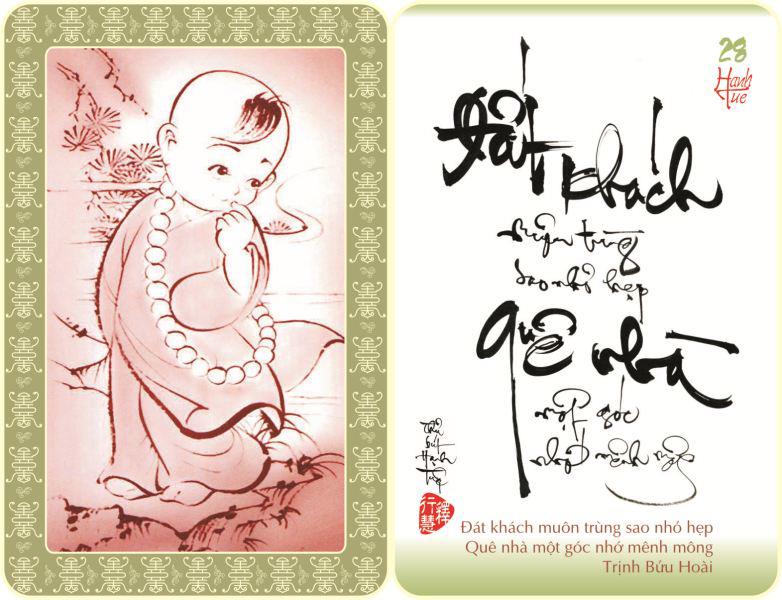 28
Hạnh
Tuệ
Đất khách
muôn trùng
sao nhỏ hẹp
quê nhà
một góc
nhớ mênh mông
釋行慧
Đát khách muôn trùng sao nhó hẹp
Quê nhà một góc nhớ mênh mông
Trịnh Bứu Hoài